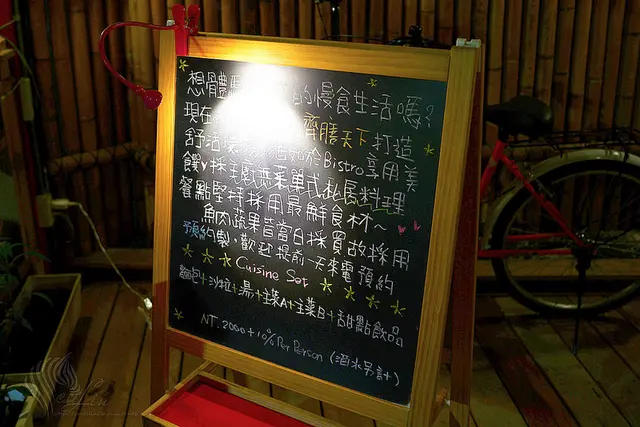 想體驗 的慢食生活嗎?
現在 齊膳天下打造
舒活 於Bistro享用美
饌♥採主廚無菜單式私房料理
餐點堅持採用最鮮食材~
魚肉蔬果皆當日採買故採用
預約製,歡迎提前一天來電預約
Cuisine Set
麵包+沙拉+湯+主菜A+主菜B+甜點飲品
NT.2000+10% Per Person (酒水另計)